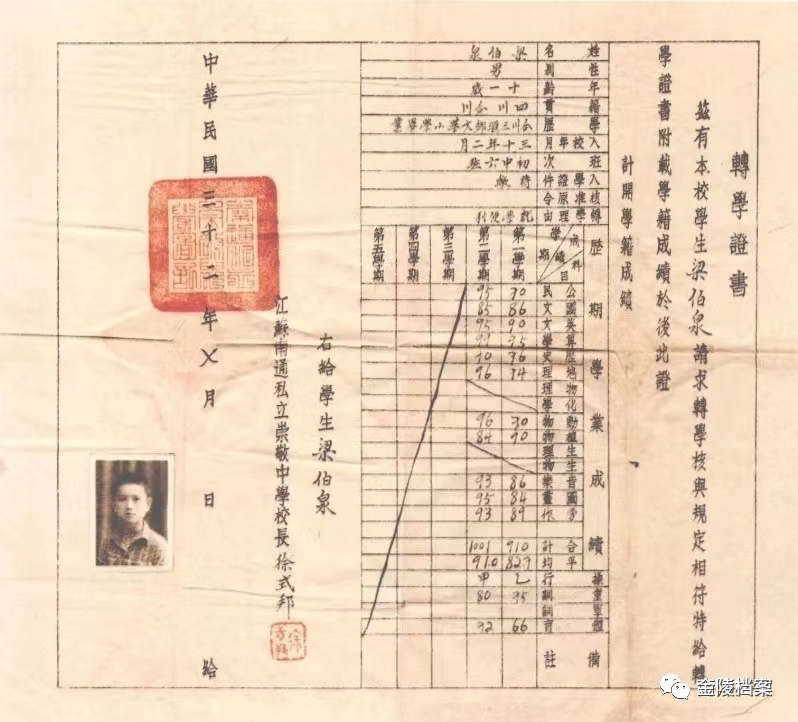 轉學證書
茲有本校學生梁伯泉請求轉學核與規定相符特給轉
學證書附載學籍成績於後此證
計開學籍成績
姓名 梁伯泉
性別 男
年齡 十一歲
籍貫 四川合川
學歷 合川三廟鄉文華小學畢業
入校年月 三十年二月
班次 初中六班
入學證件 待繳
核准原令
轉學理由 就學便利
歷期學業成績
成績 科目 學期 第一學期 第二學期 第三學期 第四學期 第五學期
公民 70 95
國文 86 85
英文 90 95
算學 95 99
歷史 76 70
地理 74 96
物理
化學
動物 70 96
植物 90 84
生理
生物
音樂 86 93
國畫 84 95
勞作 89 93
合計 910 1001
平均 82.7 91.0
操行 乙 甲
童訓 95 80
軍訓
體育 66 92
備註
右給學生梁伯泉
江蘇南通私立崇敬中學校長徐式邦
中華民國三十二年七月 日 給
金陵档案